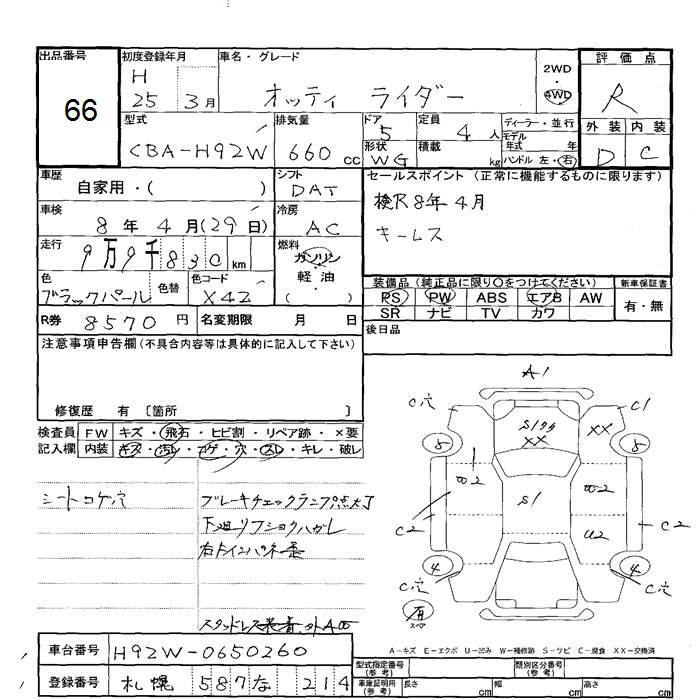 出品番号
66
初度登録年月
H
25 3月
車名・グレード
オッティ ライダー
2WD
・
4WD
評価点
R
外装 内装
D C
型式
CBA-H92W
排気量
660 cc
ドア
5
定員
4人
ディーラー・並行
モデル
年式 年
形状
WG
積載
kg
ハンドル 左・右
車歴
自家用・( )
シフト
DAT
セールスポイント (正常に機能するものに限ります)
検R8年4月
キーレス
車検
8年4月(29日)
冷房
AC
走行
9万9千830km
燃料
ガソリン
軽油
( )
色
ブラックパール
色替
色コード
X42
装備品 (純正品に限り○をつけてください)
PS PW ABS エアB AW
SR ナビ TV カワ
新車保証書
有・無
R券 8570円
名変期限 月 日
後日品
注意事項申告欄(不具合内容等は具体的に記入して下さい)
修復歴 有 〔箇所 〕
検査員
記入欄
FW キズ・飛石・ヒビ割・リペア跡・×要
内装 キズ・汚レ・コゲ・穴・スレ・キレ・破レ
シートコゲ穴
ブレーキチェックランプ点灯
A1
C穴
C1
S1クサ
XX
XX
5
5
S1
C2
C2
U2
4
4
C穴
C穴
有
スペア
A-キズ E-エクボ U-凹み W-補修跡 S-サビ C-腐食 XX-交換済
車台番号
H92W-0650260
登録番号
札幌 587 な 214
型式指定番号
(参考)
類別区分番号
(参考)
車庫証明用
(参考)
長さ cm
幅 cm
高さ cm